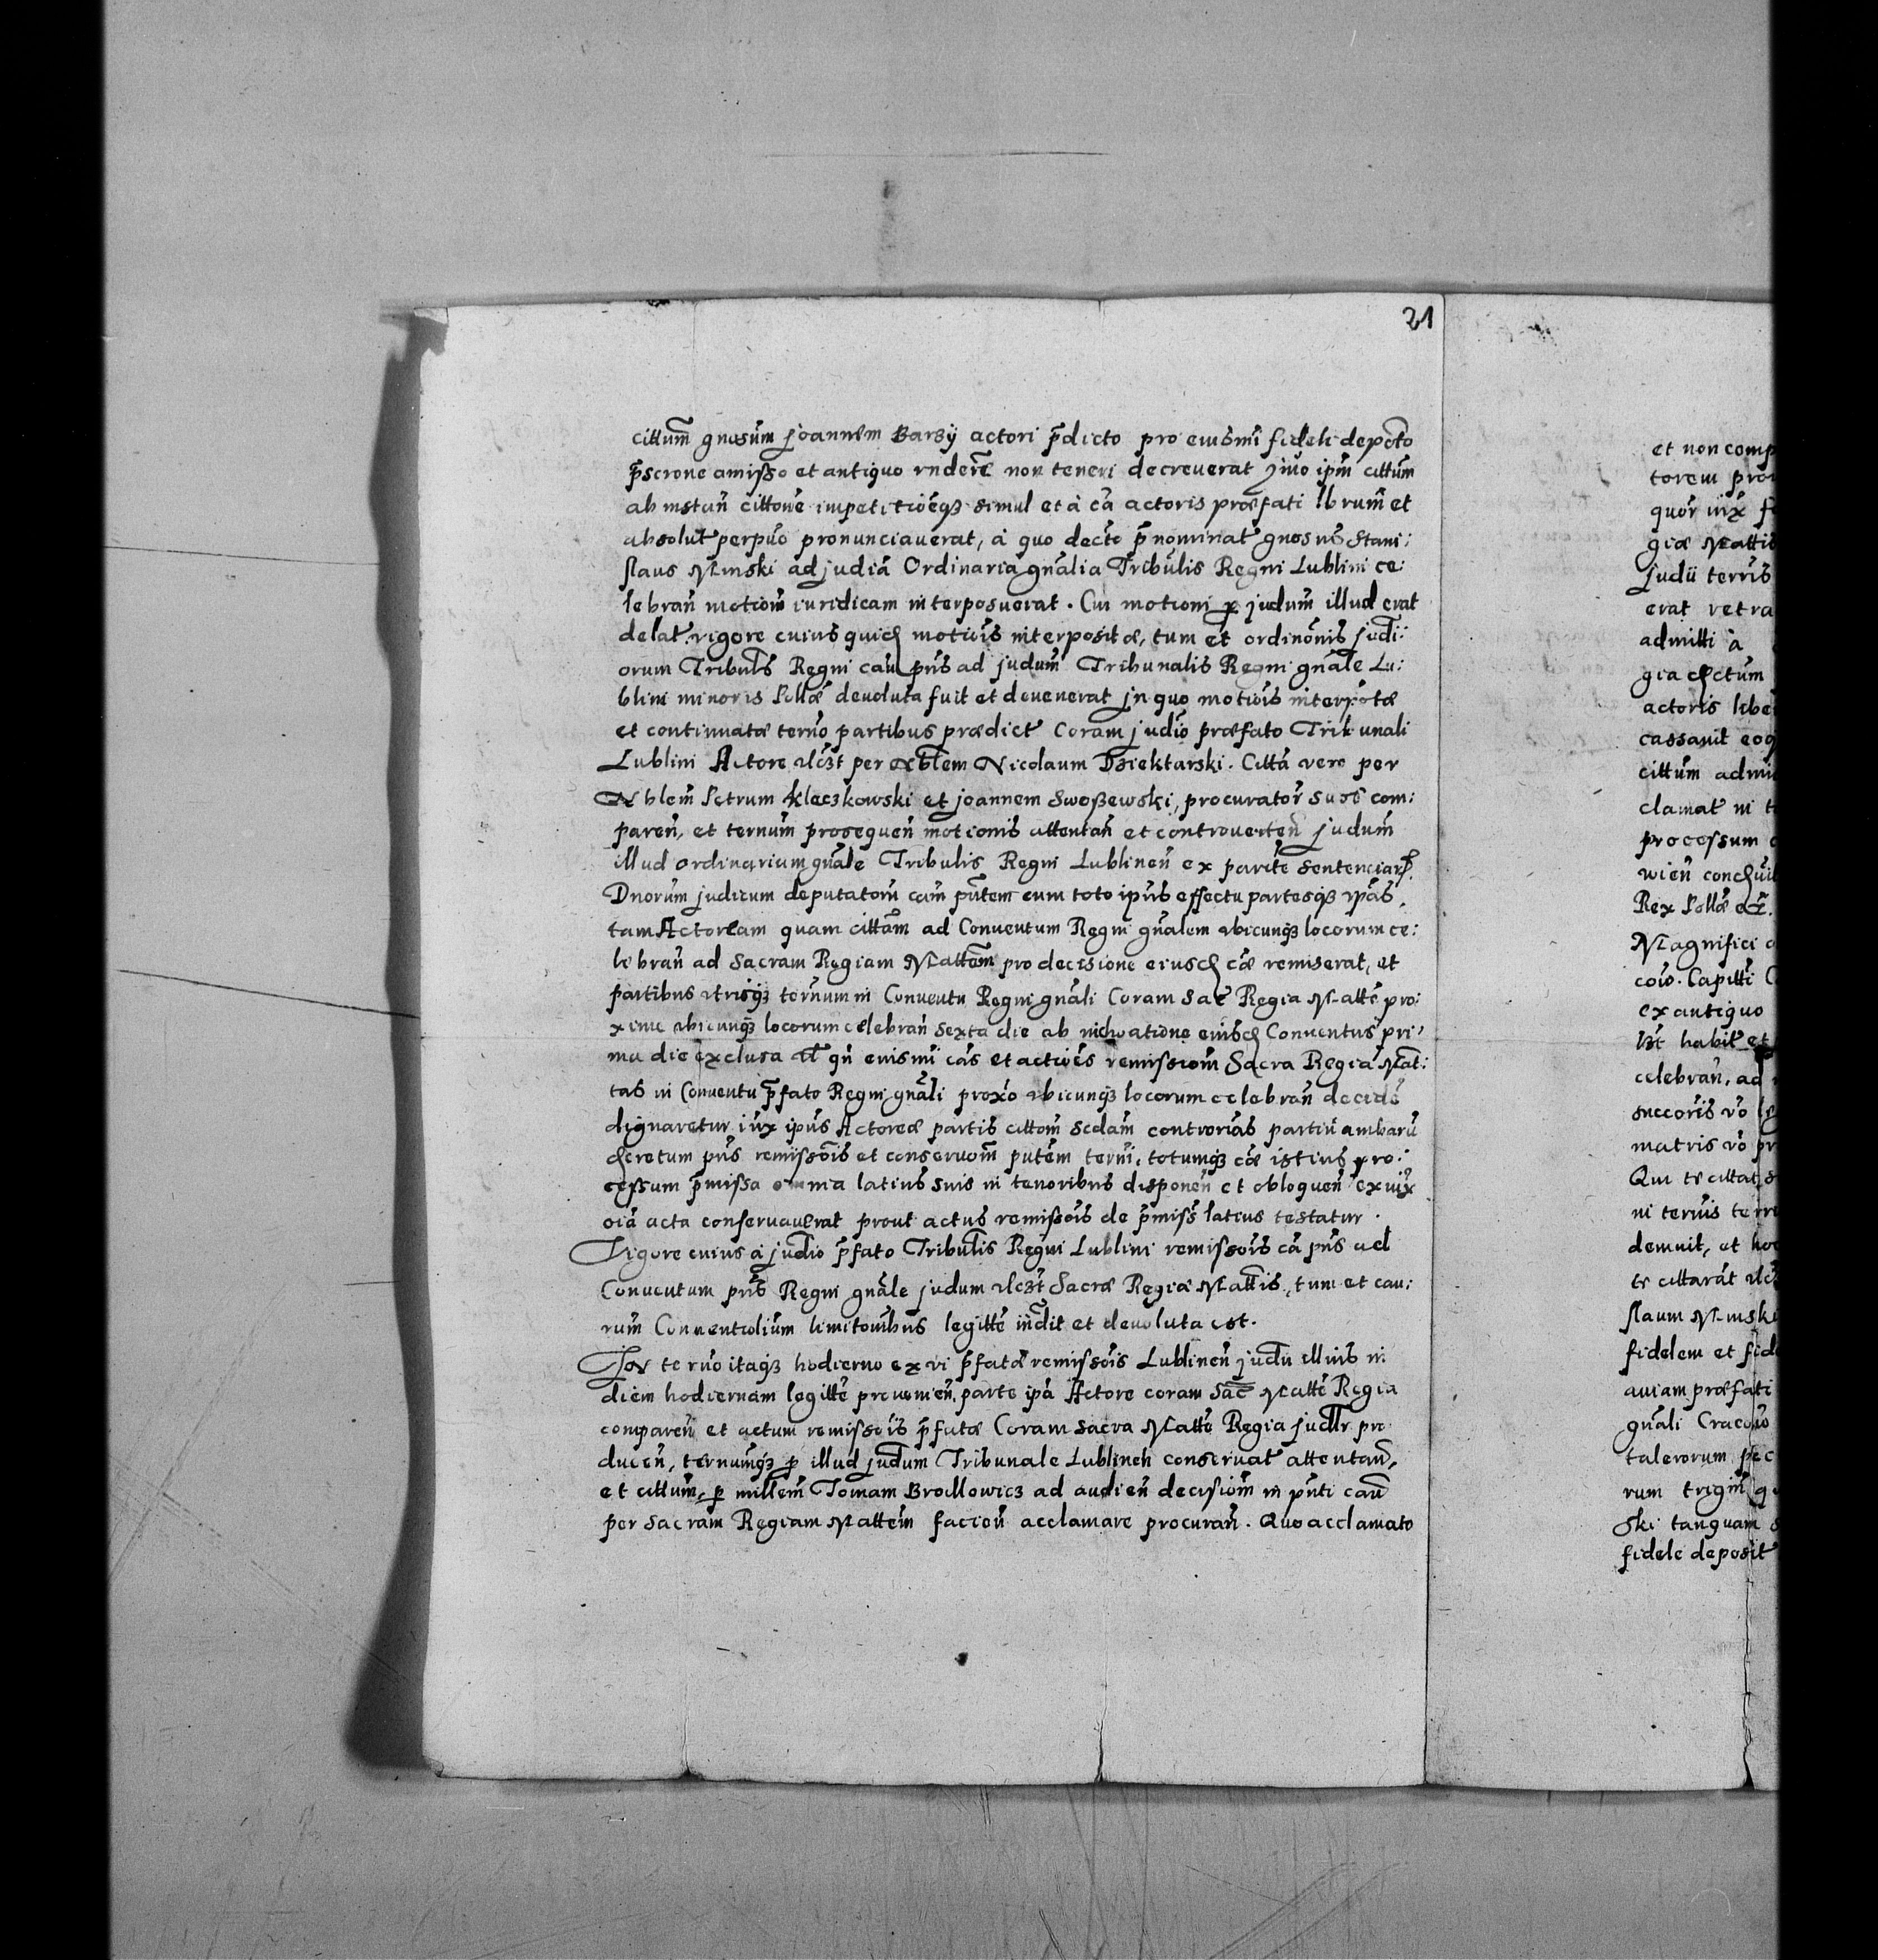 21
cittum gnosum Joannem Barzÿ actori pdicto pro eiusmi fideli depoto
pscrone amisso et antiquo rndere non teneri decreverat imo ipm cittum
ab instan cittone impetitioeq3 simul et à ca actoris præfati lbrum et
absolut perpuo pronunciauerat, à quo decto pnominat gnosus Stani:
slaus Minski ad judia Ordinaria gnalia Tribulis Regni Lublini ce:
lebran motiom iuridicam interposuerat. Cui motioni p judum illud erat
delat, rigore cuius quid motiois interpositæ, tum et ordinonis judi:
orum Tribulis Regni cau pns ad judum Tribunalis Regni gnale Lu:
blini minoris Pollæ deuoluta fuit et deuenerat jn quo motiois interpotæ
et continuatæ terno partibus prædict Coram judio præfato Tribunali
Lublini Actore vlc3t per Nblem Nicolaum Dziektarski. Citta vero per
Nblem Petrum Kleczkowski et Joannem Swoszewski, procurator suos com:
paren, et ternum prosequen motionis attentan et controuerten judum
illud ordinarium gnale Tribulis Regni Lublinen ex parite sententiarum
Dnorum judicum deputatoru cam pntem cum toto ipius effectu partesq3 ipas,
tam Actoream quam cittam ad Conuentum Regni gnalem vbicunq3 locorum ce:
lebran ad Sacram Regiam Mattem pro decisione eiusd cæ remiserat, et
partibus vtrisq3 ternum in Conuentu Regni gnali Coram Sac Regia Matte pro:
xime vbicunq3 locorum celebran sexta die ab inchoatione eiusd Conuentus pri:
ma die exclusa vt qn eiusmi cas et actiois remissiom Sacra Regia Mat:
tas in Conuentu pfato Regni gnali proxo vbicunq3 locorum celebran decide
dignaretur iux ipius Actoreæ partis cittom sedam controrias partiu ambaru
decretum pns remissois et conseruom putem terni, totumq3 cæ istius pro:
cessum pmissa omnia latius suis in tenoribus disponen et obloquen ex uix
oia acta conseruauerat prout actus remissois de pmiss latius testatur.
Vigore cuius à judio pfato Tribulis Regni Lublini remissois ca pns ad
Conuentum pns Regni gnale judum vlc3t Sacræ Regiæ Mattis, tum et cau:
rum Conuentiolium limitonibus legitte indit et deuoluta est.
Jn terno itaq3 hodierno ex vi pfatæ remissois Lublinen judii illius in
diem hodiernam legitte prouenien, parte ipa Actore coram Sac Matte Regia
comparen et actum remissois pfatæ Coram Sacra Matte Regia judlr pro
ducen, ternumq3 p illud judum Tribunale Lublinen conseruat attentan,
et cittum, p millem Tomam Brollowicz ad audien decisiom in pnti cau
per Sacram Regiam Mattem facien acclamare procuran. Quo acclamato
et non comp
torem pro
quor iux
giæ Mattis
judii terris
erat retra
admitti à
gia dectum
actoris libe
cassauit eoq
cittum admi
clamat in t
processum
wien
Rex Pollæ
Magnifici
cow. Capitti
ex antiquo
habit et
celebran, ad
succoris vo
matris vo pr
Qui
ni ternis terre
demnit, et hoc
te cittarat vlc3
slaum Minski
fidelem et fide
auiam præfati
gnali Cracow
talerorum pec
rum trigin q
ski tanquam
fidele deposit